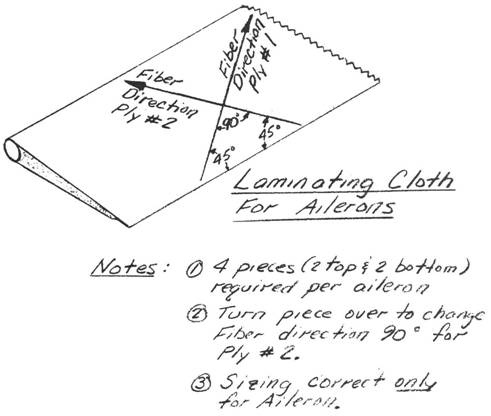 Fiber
Direction
Ply #1
Fiber
Direction
Ply #2
90°
45°
45°
Laminating Cloth
For Ailerons
Notes: ① 4 pieces (2 top & 2 bottom)
required per aileron
② Turn piece over to change
Fiber direction 90° for
Ply # 2.
③ Sizing correct only
for Aileron.